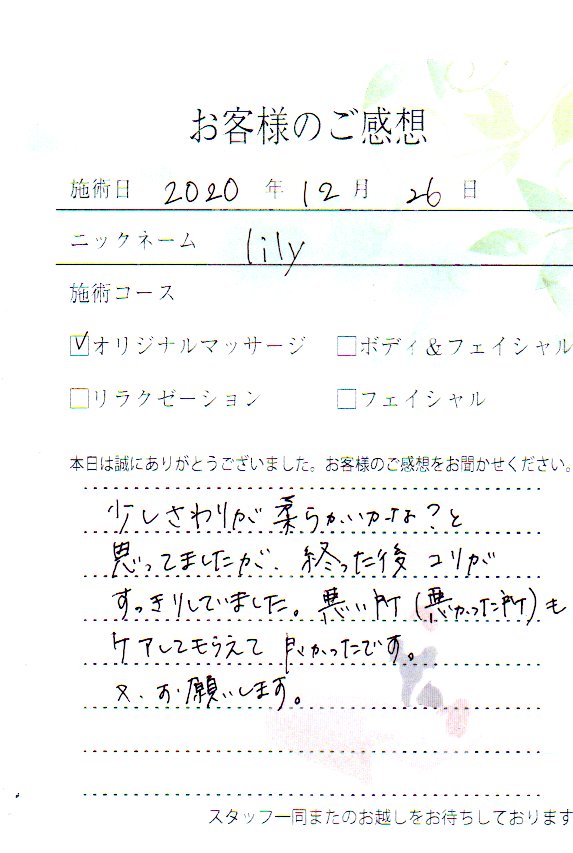 お客様のご感想
施術日 2020 年 12 月 26 日
ニックネーム lily
施術コース
☑オリジナルマッサージ □ボディ&フェイシャル
□リラクゼーション □フェイシャル
本日は誠にありがとうございました。お客様のご感想をお聞かせください。
少しさわりが柔らかいかな?と
思ってましたが、終った後コリが
すっきりしていました。悪い所(悪かった所)も
ケアしてもらえて良かったです。
又、お願いします。
スタッフ一同またのお越しをお待ちしております